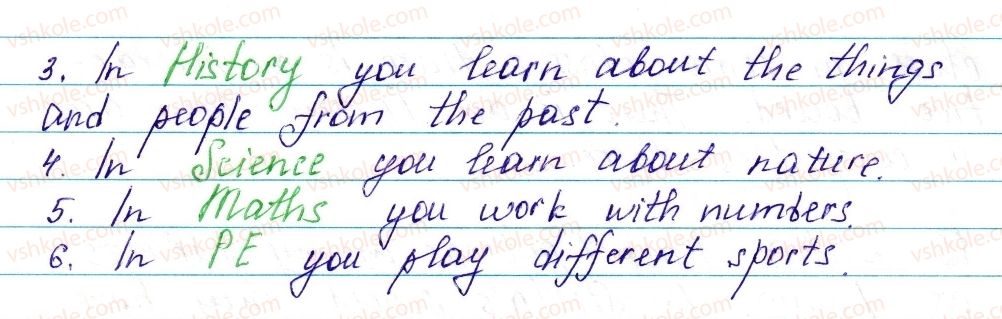 3. In History you learn about the things
and people from the past.
4. In Science you learn about nature.
5. In Maths you work with numbers.
6. In PE you play different sports.